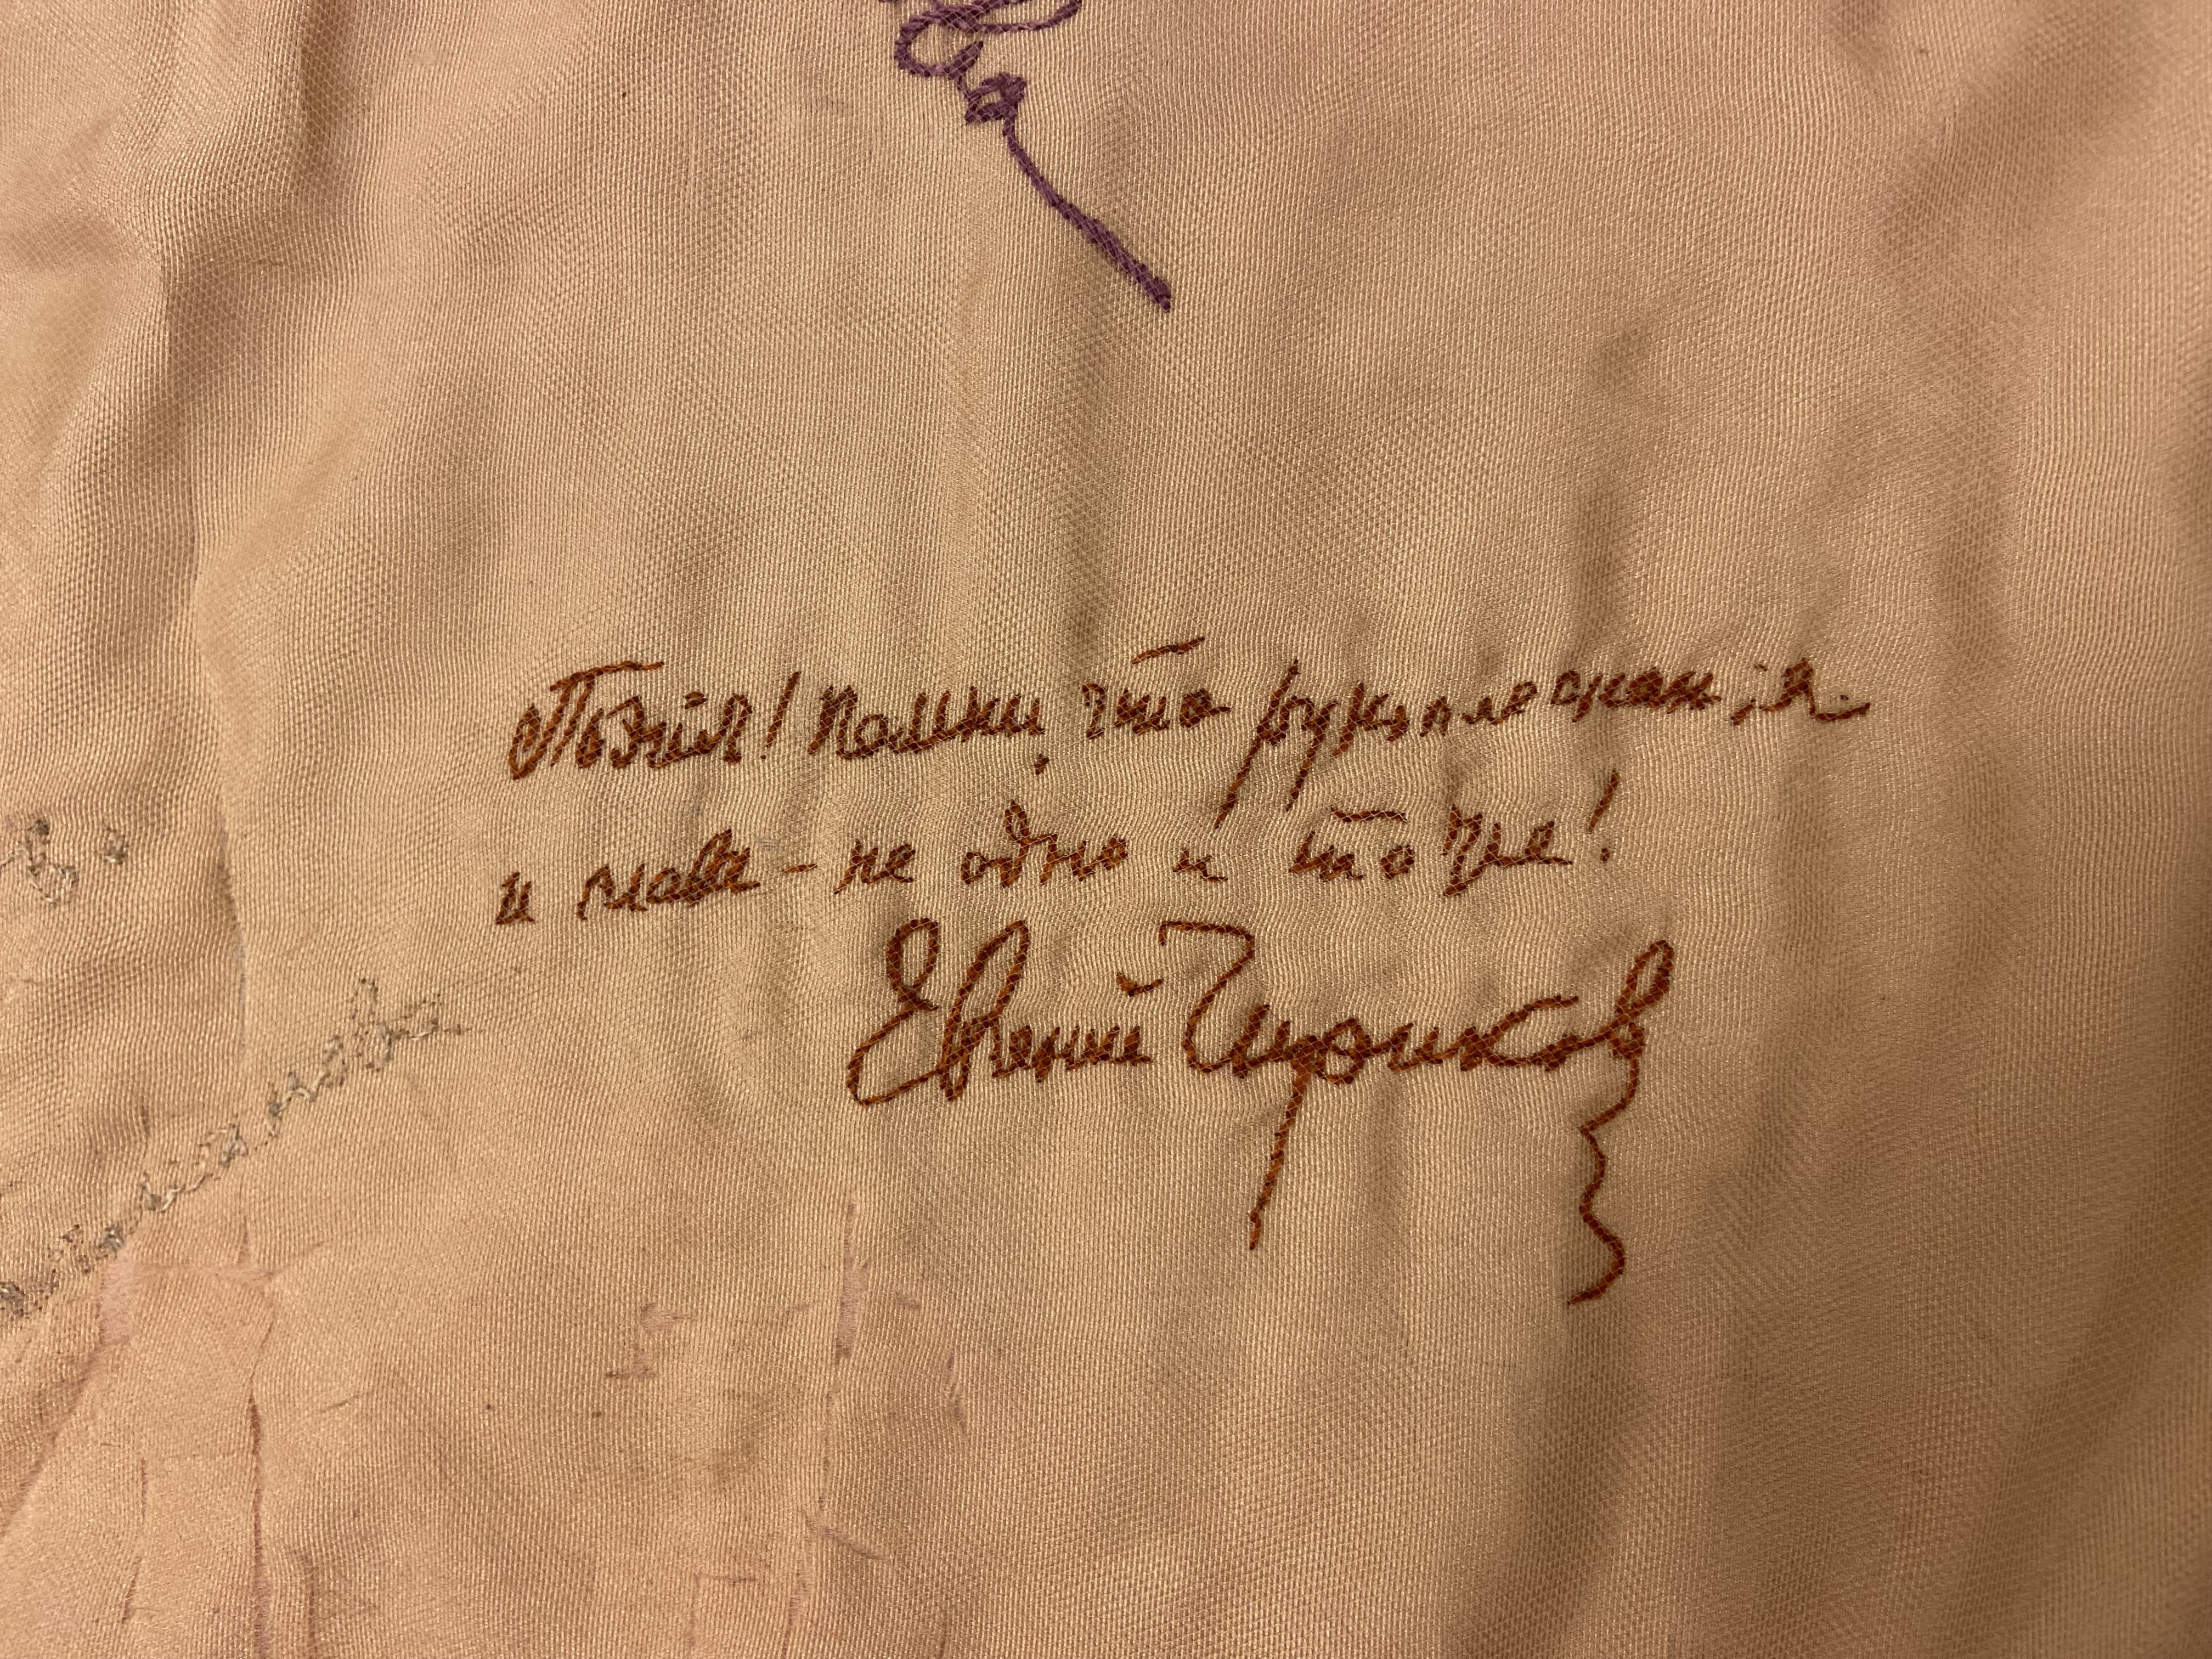 Поэтъ! Помни, что рукоплесканія
и слава - не одно и то же!
Евгений Чириков